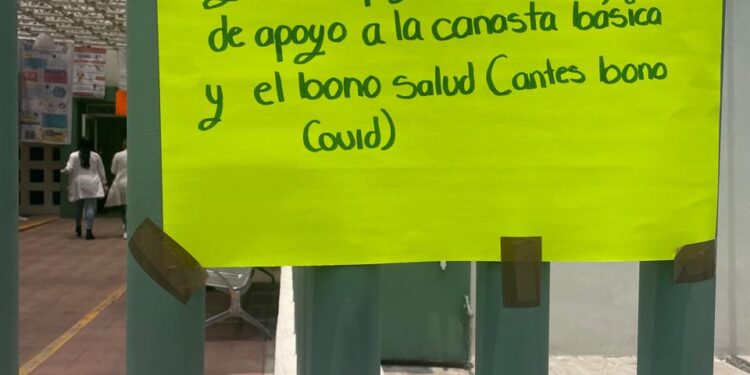 de apoyo a la canasta básica
y el bono salud (antes bono
Covid)